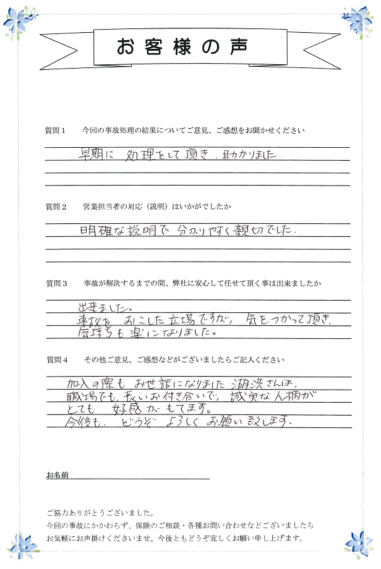 お客様の声
質問１　今回の事故処理の結果についてご意見、ご感想をお聞かせください
早期に 処理をして頂き、助かりました
質問２　営業担当者の対応（説明）はいかがでしたか
明確な説明で 分かりやすく親切でした.
質問３　事故が解決するまでの間、弊社に安心して任せて頂く事は出来ましたか
出来ました。
事故を おこした立場ですが、気をつかって頂き、
気持ちも楽になりました。
質問４　その他ご意見、ご感想などがございましたらご記入ください
加入の際も お世話になりました さんは、
職場でも 長いお付き合いで、誠実な人柄が
とても 好感がもてます。
今後も、どうぞ よろしくお願い致します.
お名前
ご協力ありがとうございました。
今回の事故にかかわらず、保険のご相談・各種お問い合わせなどございましたら
お気軽にお声掛けくださいませ。今後ともどうぞ宜しくお願い申し上げます。